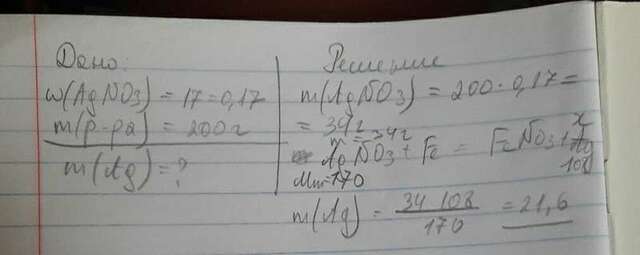 Дано:
w(AgNO3) = 17 = 0,17
m(р-ра) = 200г
m(Ag) = ?
Решение
m(AgNO3) = 200 · 0,17 =
= 34г
m = 34г x
AgNO3 + Fe = FeNO3 + Ag
Mm=170 108
m(Ag) = 34 108 / 170 = 21,6